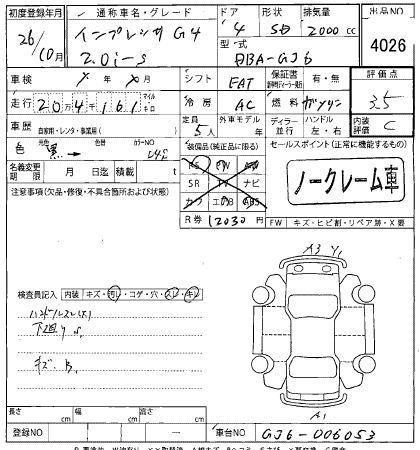 初度登録年月 通称車名・グレード ドア 形状 排気量 出品NO
26/10月 インプレッサ G4 4 SD 2000 cc 4026
2.0i-S 型式 DBA-GJ6
車検 年 月 シフト FAT 保証書 有・無 評価点
走行 204161 マイル キロ 冷房 AC 燃料 ガソリン 3.5
車歴 自家用・レンタ・事業用( ) 定員 5人 外車モデル 年 ディーラー 並行 ハンドル 左・右 内装 C
色 元色 黒→ 色番 カラーNO D4S
装備品(純正品に限る) セールスポイント(正常に機能するもの)
名義変更期限 月 日迄 積載 t
PS PW AW
SR TV ナビ
カワ エアB ABS
ノークレーム車
注意事項(欠品・修復・不具合箇所および状態)
R券 12030 FW キズ・ヒビ割・リペア跡・X要
A3 Y1
検査員記入 内装 キズ・汚レ・コゲ・穴・スレ・キレ
ハンドルスレ(大)
下廻り S
キズ B1
A1
長さ cm 幅 cm 高さ cm
登録NO 車台NO GJ6-006053